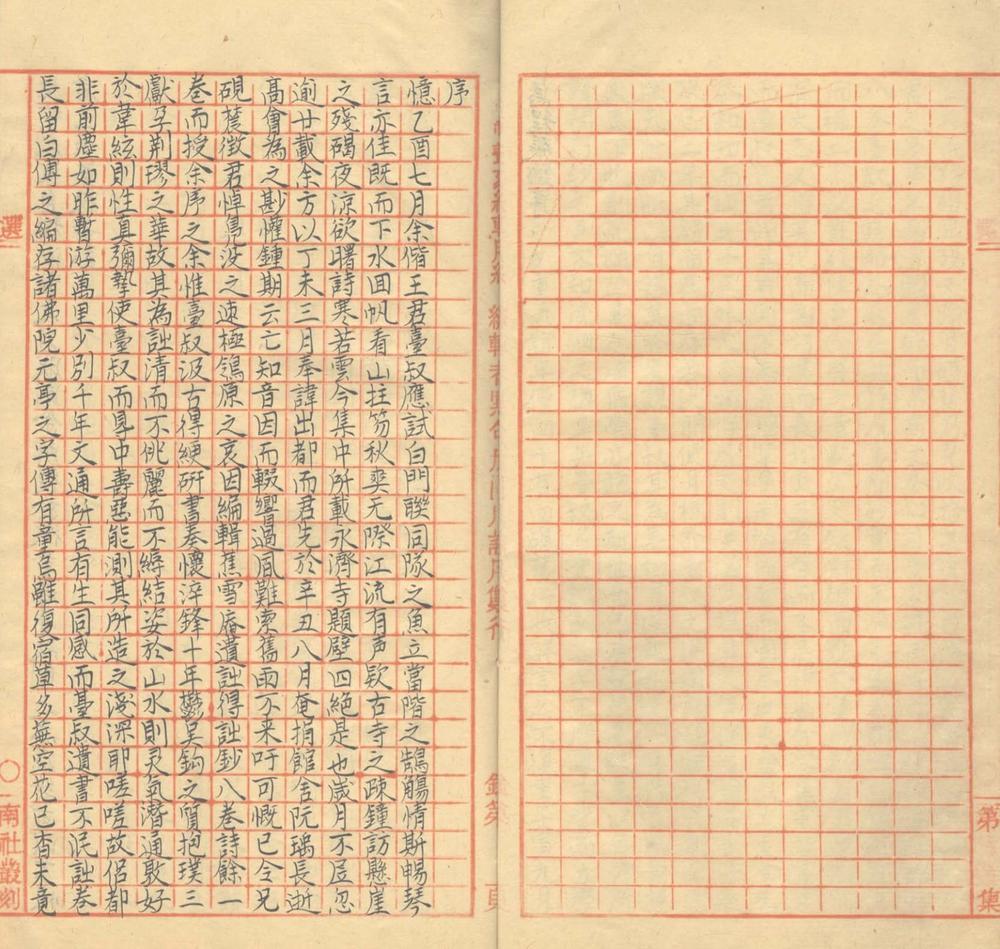 序
憶乙酉七月余偕王君臺叔應試白門聯同隊之魚立當階之鵠觴情斯暢琴
言亦佳既而下水回帆看山拄笏秋爽无際江流有声欵古寺之疎鐘訪懸崖
之殘碣夜涼欲曙詩寒若雲今集中所載永濟寺題壁四絕是也歲月不居忽
逾廿載余方以丁未三月奉諱出都而君先於辛丑八月奄捐館舍阮瑀長逝
高會為之尠懽鍾期云亡知音因而輟響過凬難索舊雨不来吁可慨已令兄
硯農徴君悼鳧沒之速極鴒原之哀因編輯蕉雪庵遺詩得詩鈔八卷詩餘一
卷而授余序之余惟臺叔汲古得綆研書奏懷淬鋒十年鬱吴鈎之質抱璞三
獻孕荆璆之華故其為詩清而不佻麗而不縟結姿於山水則灵氣潛通敦好
於韋絃則性真彌摯使臺叔而㝵中壽惡能測其所造之淺深耶嗟嗟故侶都
非前塵如昨暫游萬里少别千年文通所言有生同感而臺叔遺書不泯詩卷
長留白傅之編存諸佛院元亭之字傳有童烏雖復宿草多蕪空花已杳未竟
選
南社叢刻
第
集